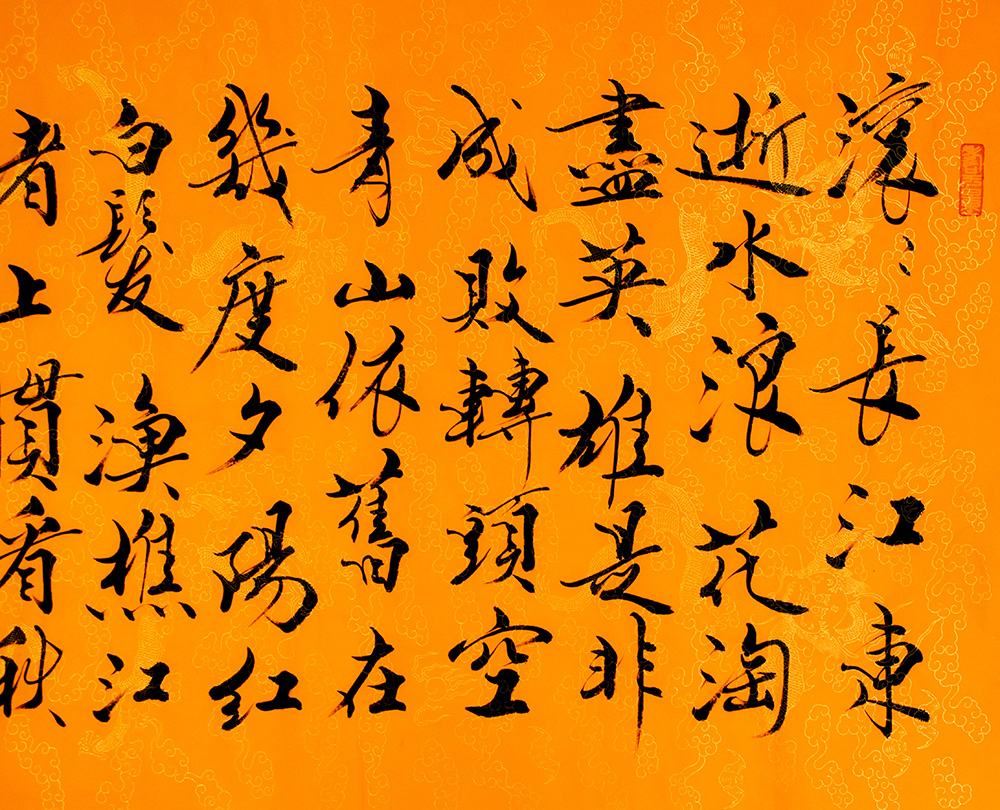 滾〻長江東
逝水浪花淘
盡英雄是非
成敗轉頭空
青山依舊在
幾度夕陽红
白髮渔樵江
者上慣看秋